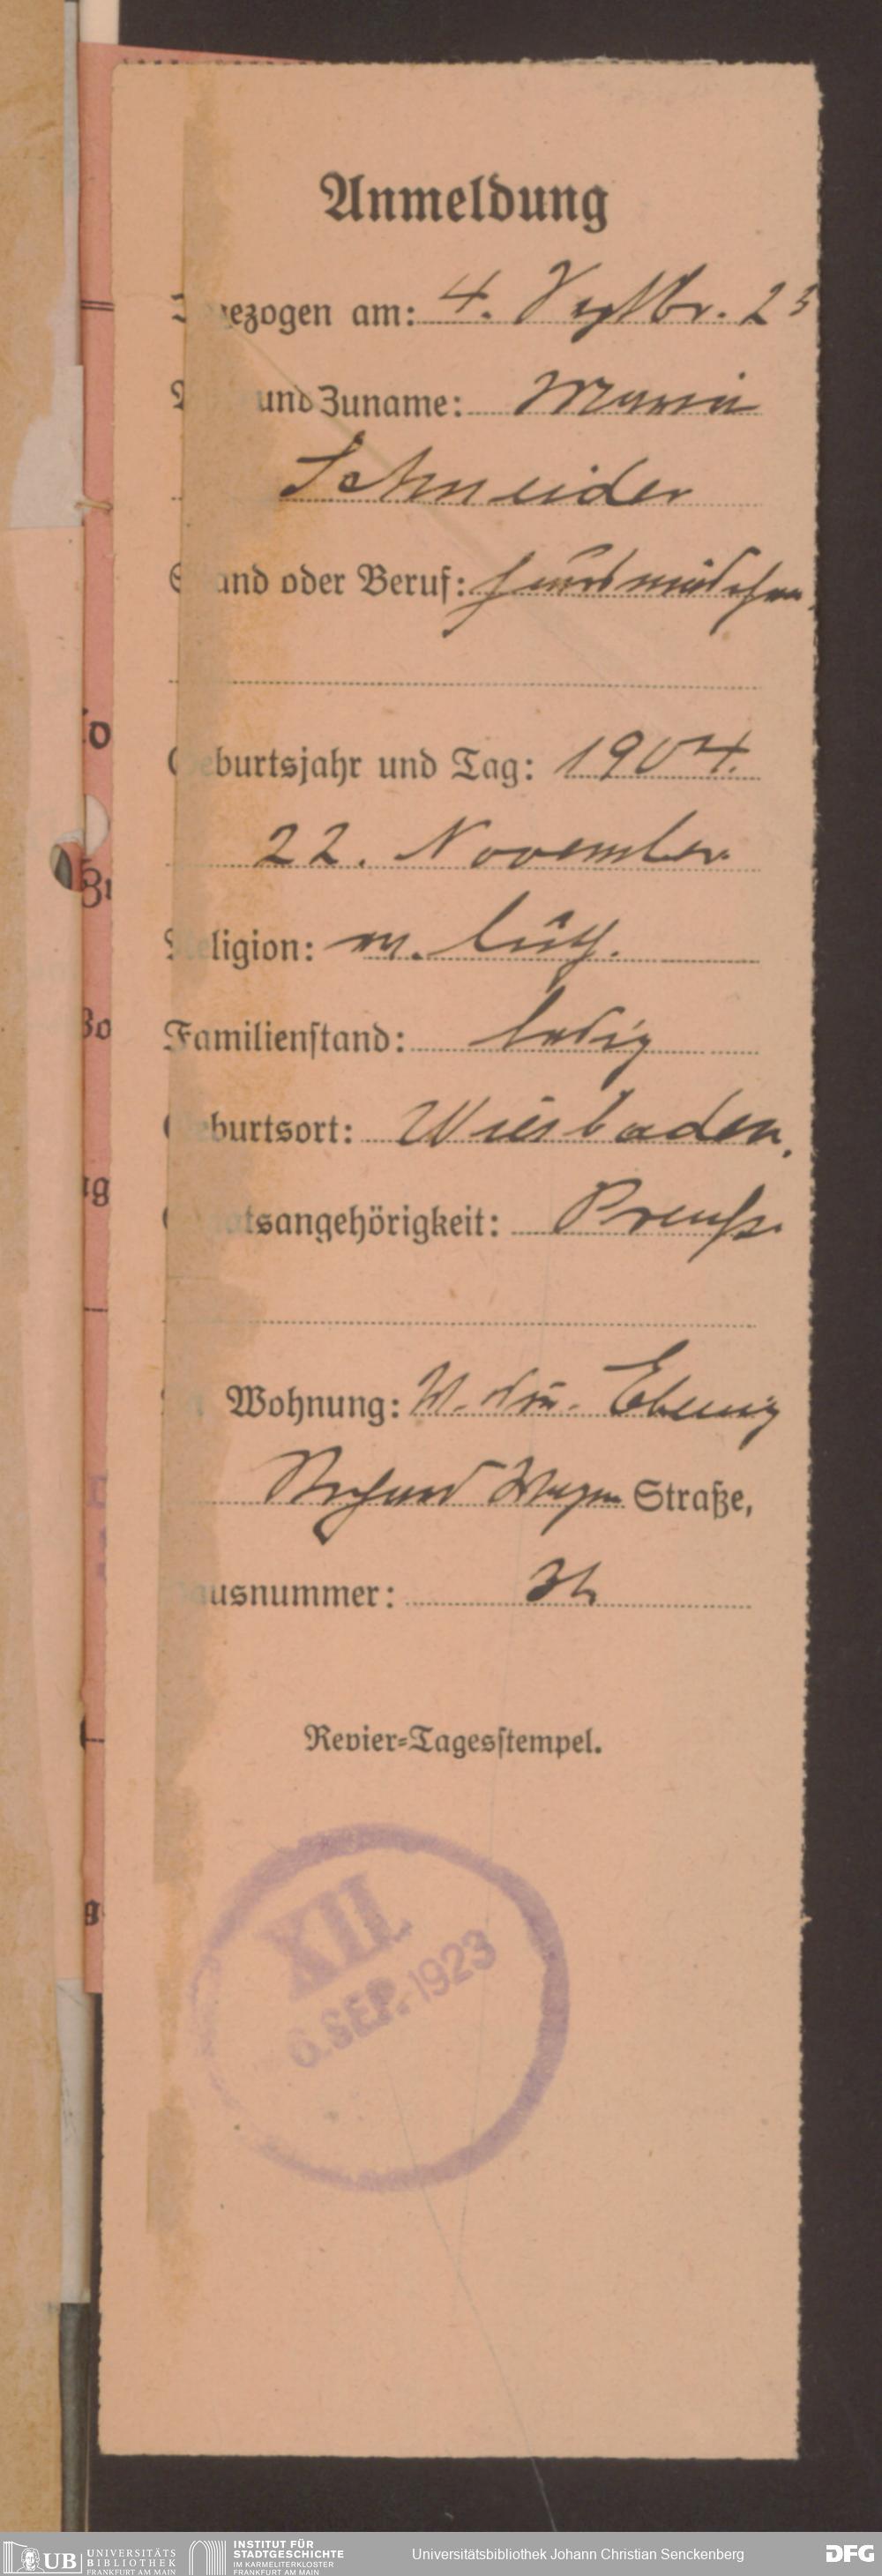 Anmeldung
gezogen am: 4. Septbr. 23
und Zuname: Maria
Schneider
and oder Beruf: Hausmädchen.
eburtsjahr und Tag: 1904.
22. November
eligion: luth.
Familienstand: ledig
burtsort: Wiesbaden.
tsangehörigkeit: Preuß.
Wohnung:
Richard Wagner Straße,
usnummer:
Revier-Tagesstempel.
XII.
6. SEP. 1923
UB UNIVERSITÄTS BIBLIOTHEK FRANKFURT AM MAIN
INSTITUT FÜR STADTGESCHICHTE IM KARMELITERKLOSTER FRANKFURT AM MAIN
Universitätsbibliothek Johann Christian Senckenberg
DFG